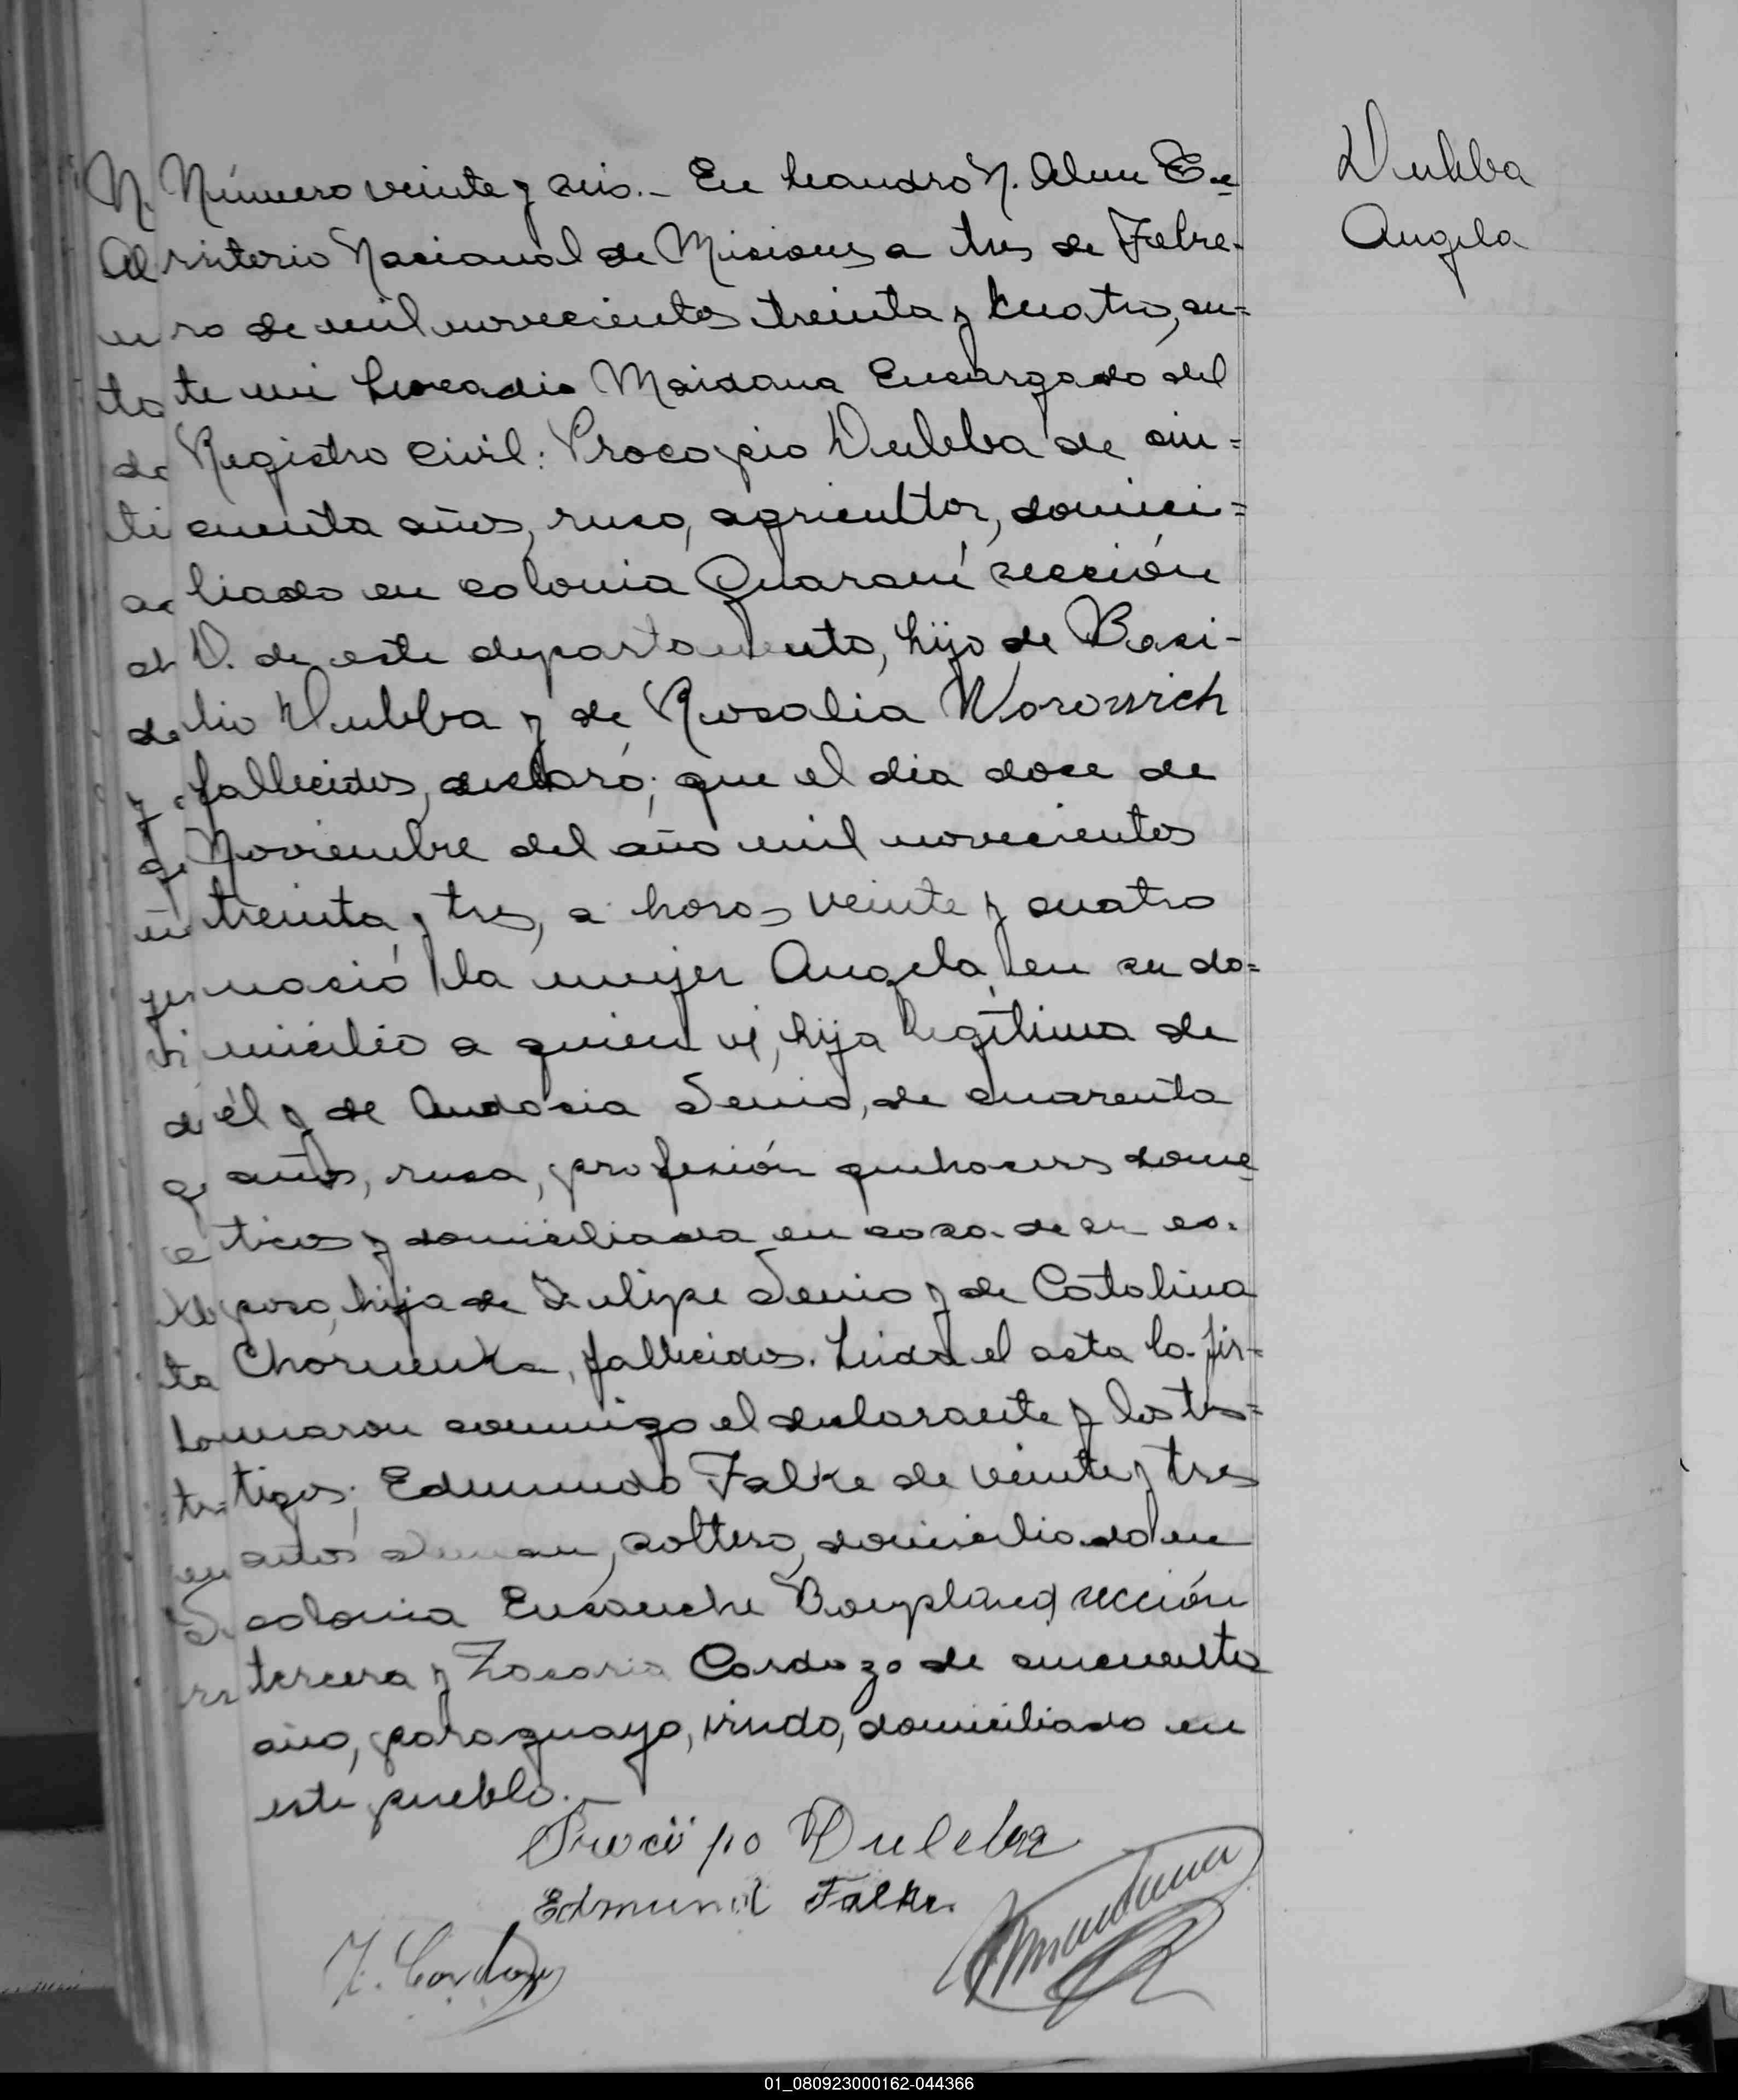 Duleba
Angela
Número veinte y seis.- En Leandro N. Alem Te=
rritorio Nacional de Misiones a tres de Febre-
ro de mil novecientos treinta y cuatro, an=
te mi Leocadio Maidana Encargado del
Registro Civil: Procopio Duleba de cin=
cuenta años, ruso, agricultor, domici=
liado en colonia Guaraní sección
D. de este departamento, hijo de Basi-
lio Duleba y de Rosalia Worowich
fallecidos, declaró; que el dia doce de
Noviembre del año mil novecientos
treinta y tres, a horas veinte y cuatro
nació la mujer Angela, en su do=
micilio a quien ví, hija legítima de
él y de Audosia Senio, de cuarenta
años, rusa, profesión quehaceres domé
ticos y domiciliada en casa de su es.
poso, hija de Felipe Senio y de Catalina
Chormenka, fallecidos. Leida el acta la fir=
maron conmigo el declarante y los tes=
tigos; Edmundo Falke de veinte y tres
años aleman, soltero, domiciliado en
colonia Ensanche Bonpland sección
tercera y Zacaria Cardozo de cincuenta
año, paraguayo, viudo, domiciliado en
este pueblo.-
Procopio Duleba
Edmund Falke.
Z. Cardozo
01_080923000162-044366